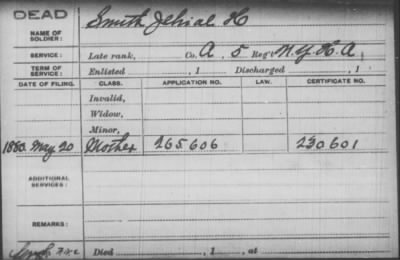 DEAD
NAME OF SOLDIER: Smith Jehial H
SERVICE: Late rank, Co. A, 5 Reg't N.Y.H.A.
TERM OF SERVICE: Enlisted , 1 Discharged , 1
DATE OF FILING. CLASS. APPLICATION NO. LAW. CERTIFICATE NO.
Invalid,
Widow,
Minor,
1880. May 20 Mother 265606 230601
ADDITIONAL SERVICES:
REMARKS:
Died , 1 , at